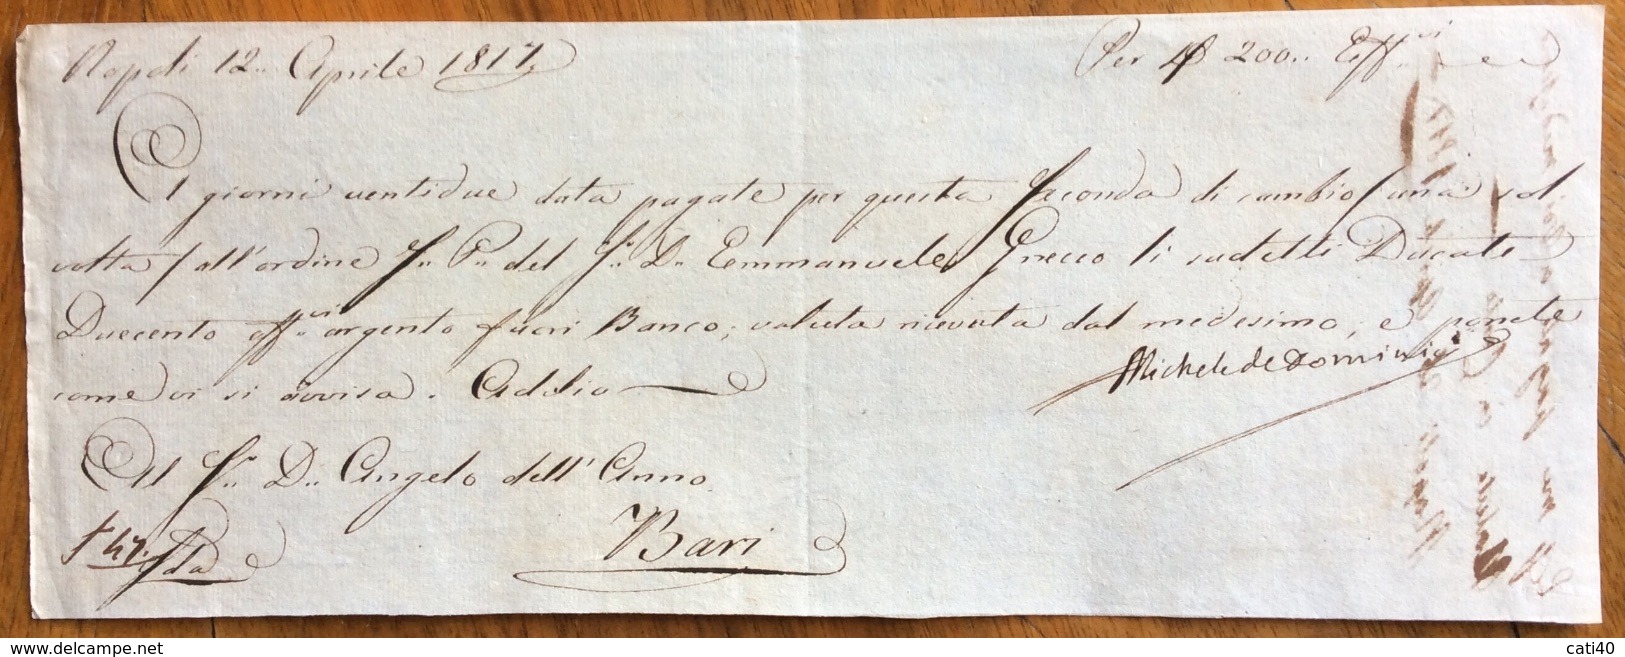 Napoli 12.. Aprile 1817,
Per D 200.. Eff.vi
A giorni ventidue data pagate per questa Seconda di cambio /una sol
volta/ all'ordine S.. P.. del S.r D.. Emmanuele Grecco li sudetti Ducati
Duecento eff.vi argento fuori Banco, valuta ricevuta dal medesimo, e ponete
come vi si avvisa. Addio
Michele de Dominicis
Al S.r D.. Angelo dell'Anno
Bari
Sda
www.delcampe.net
cati40